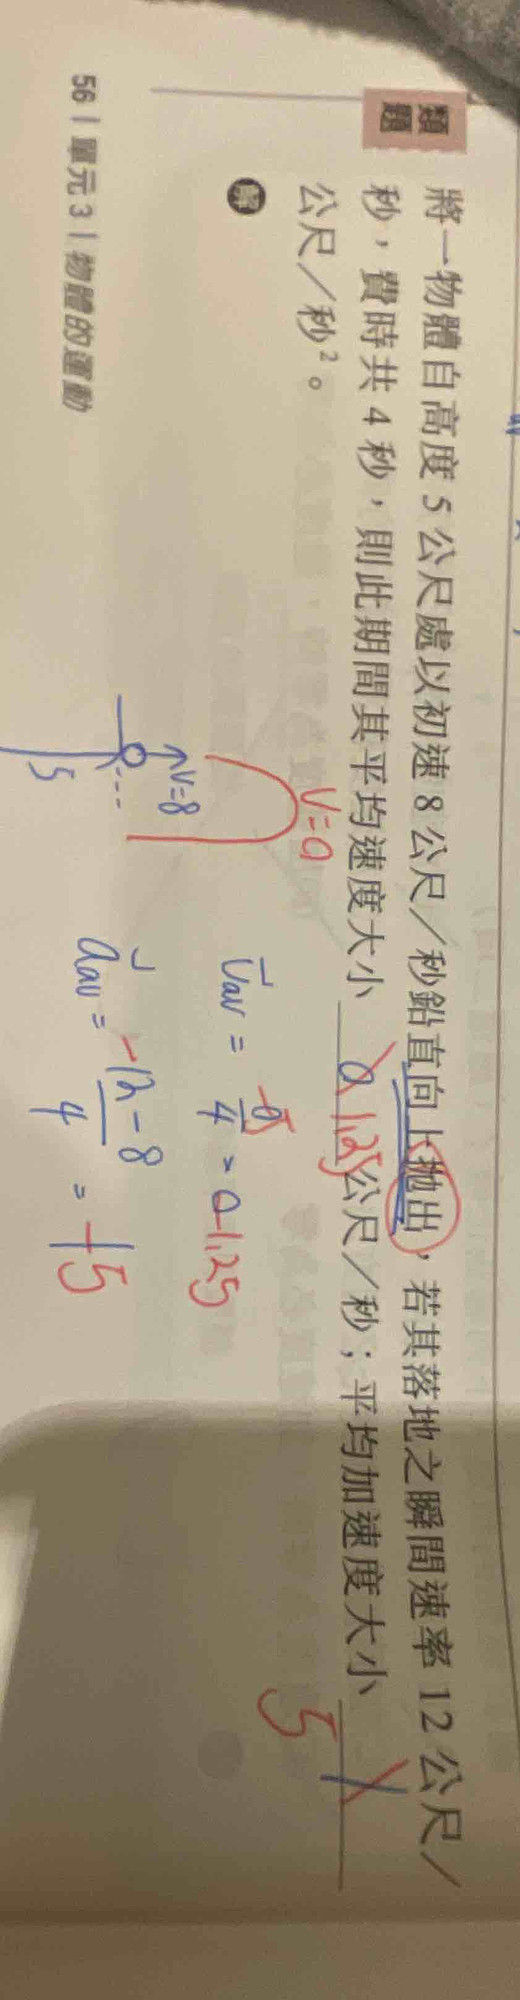 類題
將一物體自高度5公尺處以初速8公尺/秒鉛直向上拋出,若其落地之瞬間速率12公尺/
秒,費時共4秒,則此期間其平均速度大小 1.25 公尺/秒;平均加速度大小 5
公尺/秒²。
解
V=0
V=8
5
Vav = -5/4 = -1.25
aav = -12-8/4 = -5
56 | 單元3 | 物體的運動